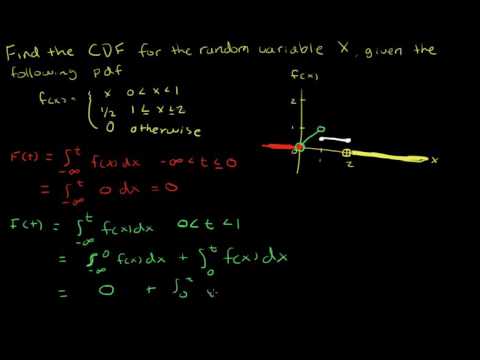 Find the CDF for the random variable X, given the
following pdf
f(x) = { x 0 < x < 1
1/2 1 ≤ x ≤ 2
0 otherwise
f(x)
2
1
0
1 2 x
F(t) = ∫_{-∞}^{t} f(x) dx -∞ < t ≤ 0
= ∫_{-∞}^{t} 0 dx = 0
F(t) = ∫_{-∞}^{t} f(x) dx 0 < t < 1
= ∫_{-∞}^{0} f(x) dx + ∫_{0}^{t} f(x) dx
= 0 + ∫_{0}^{t}